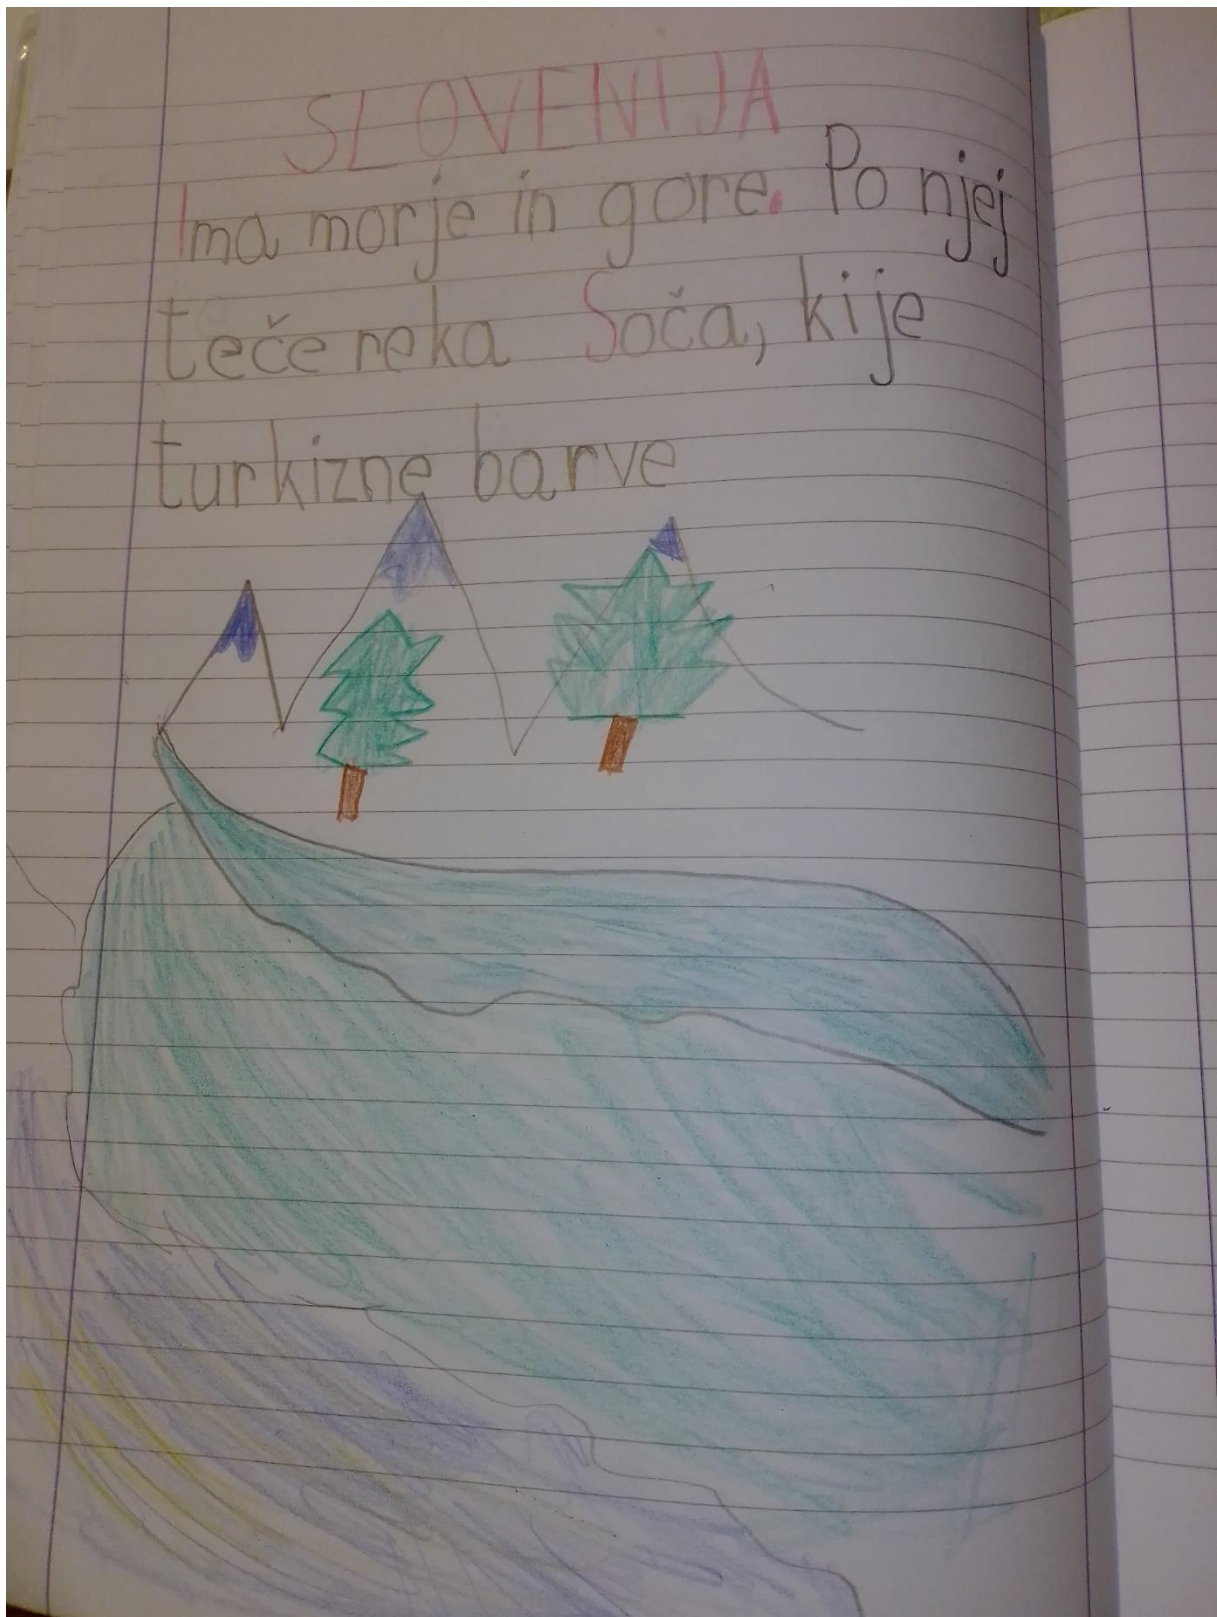 SLOVENIJA
Ima morje in gore. Po njej
teče reka Soča, ki je
turkizne barve